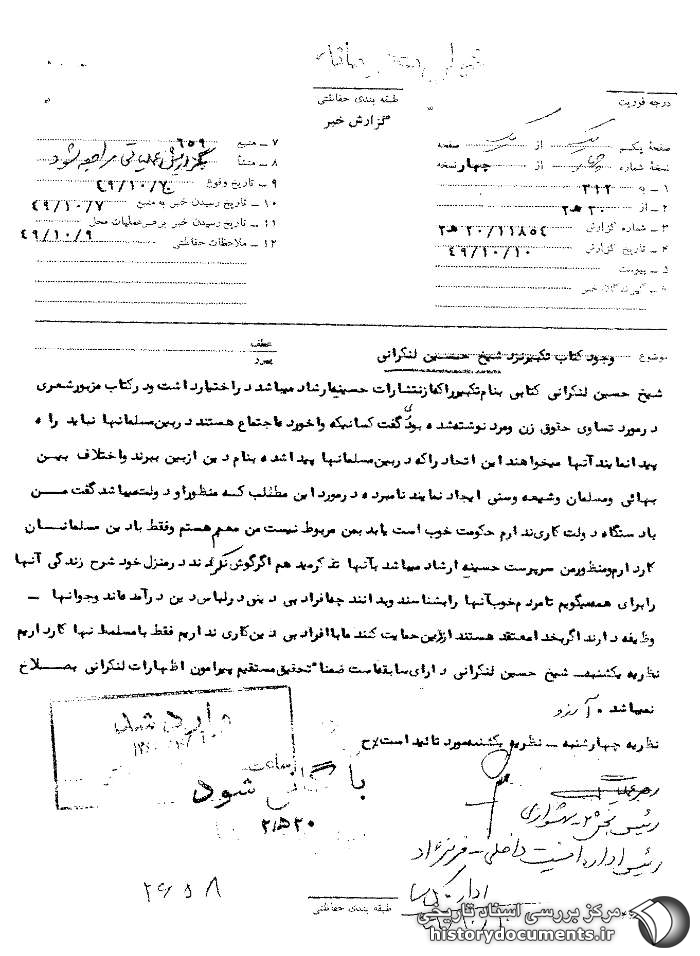 درجه فوریت
طبقه بندی حفاظتی
گزارش خبر
صفحه یکم از یک صفحه
نسخه شماره از چهار نسخه
۱ ـ به ۳۱۲
۲ ـ از ۲۰ ه‍ ۲
۳ ـ شماره گزارش ۲۰/۱۱۸۵۴ ه‍ ۲
۴ ـ تاریخ گزارش ۴۹/۱۰/۱۰
۵ ـ پیوست
۶ ـ گیرندگان خبر
۷ ـ منبع ۶۵۹
۸ ـ منشأ بگزارش عملیاتی مراجعه شود
۹ ـ تاریخ وقوع ۴۹/۱۰/۷
۱۰ ـ تاریخ رسیدن خبر به منبع ۴۹/۱۰/۷
۱۱ ـ تاریخ رسیدن خبر برهبر عملیات محل ۴۹/۱۰/۹
۱۲ ـ ملاحظات حفاظتی
موضوع وجود کتاب تکبیر نزد شیخ حسین لنکرانی
عطف
پیرو
شیخ حسین لنکرانی کتابی بنام تکبیر را که از نتشارات حسینیه ارشاد میباشد در اختیار داشت و در کتاب مزبور شعری
در مورد تساوی حقوق زن و مرد نوشته شده بود گفت کسانیکه واخورده اجتماع هستند در بین مسلمانها نباید راه
پیدا نمایند آنها میخواهند این اتحاد را که در بین مسلمانها پیدا شده بنام دین از بین ببرند و اختلاف بین
بهائی و مسلمان و شیعه و سنی ایجاد نمایند نامبرده در مورد این مطلب که منظور او دولت میباشد گفت من
با دستگاه دولت کاری ندارم حکومت خوب است یا بد بمن مربوط نیست من معمم هستم و فقط با دین مسلمانان
کار دارم و منظور من سرپرست حسینیه ارشاد میباشد بآنها تذکر میدهم اگر گوش نکردند در منزل خود شرح زندگی آنها
را برای همه میگویم تا مردم خوب آنها را بشناسند و بدانند چه افراد بی دینی در لباس دین در آمده‌اند و جوانها ـ
وظیفه دارند اگر بخدا معتقد هستند از دین حمایت کنند ما با افراد بی دین کاری نداریم فقط با مسلمانها کار داریم
نظریه یکشنبه ـ شیخ حسین لنکرانی دارای سابقه است ضمناً تحقیق مستقیم پیرامون اظهارات لنکرانی بصلاح
نمیباشد . آرزو
نظریه چهارشنبه ـ نظریه یکشنبه مورد تائید است
وارد شد
ساعت
بایگانی شود
۲۱۵۲۰
رهبر عملیات
رئیس بخش
رئیس اداره امنیت داخلی ـ فرنژاد
۲۶۵۸
طبقه بندی حفاظتی
مرکز بررسی اسناد تاریخی
historydocuments.ir